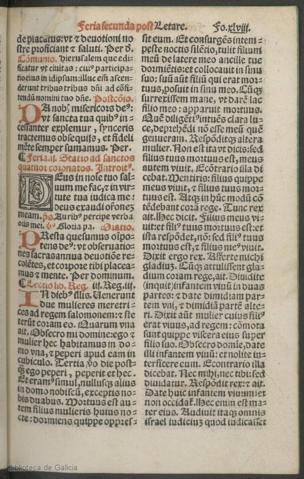 Feria secunda post Letare. Fo. xlviij.
de placatus: vt & deuotioni no
stre proficiant & saluti. Per dñ.
Cōmunio. Hierusalem que edi
ficatur vt ciuitas: cuiꝰ participa
tio eius in idipsum: illuc em̄ ascen
derunt tribus tribus dñi ad cōfi
tendū nomini tuo dñe. Postcōio.
DA nobꝭ misericors deꝰ:
vt sancta tua quibꝰ in
cessanter explemur, synceris
tractemus obsequijs, et fideli
mēte semper sumamus. Per.
Feria. ij. Statio ad sanctos
quatuor coronatos. Introitꝰ.
DEus in noīe tuo sal
uum me fac, & in vir
tute tua iudica me:
deus exaudi orationē
meam. pṡ. Auribꝰ percipe verba
oris mei. Gloria pa. Oratio.
PResta quesumus oīpo
tens deꝰ: vt obseruatio
nes sacras annua deuotiōe re
colētes, et corpore tibi placea
mus & mente. Per dominum.
Lectio lib. Reg. iij. Reg. iij.
IN diebꝰ illis. Uenerunt
due mulieres meretri
ces ad regem salomonem: & ste
terūt coram eo. Quarum vna
ait. Obsecro mi domine: ego &
mulier hec habitamus in do
mo vna, & peperi apud eam in
cubiculo. Tertia vo die post
qꝫ ego peperi, peperit et hec.
Et eramꝰ simul, nullusqꝫ alius
in domo nobiscū, exceptis no
bis duabus. Mortuus est au
tem filius mulieris huius no
cte: dormiens quippe oppres
sit eum. Et consurgēs intem
pesta noctis silētio, tulit filium
meū de latere meo ancille tue
dormiētis: et collocauit in sinu
suo: suū aūt filiū qui erat mor
tuus, posuit in sinu meo. Cūqꝫ
surrexissem mane, vt darē lac
filio meo: apparuit mortuus.
Quē diligētiꝰ intuēs clara lu
ce, deprehēdi nō esse meū quē
genueram. Respōditqꝫ altera
mulier. Non est ita vt dicis: sed
filius tuus mortuus est, meus
autem viuit. Ecōtrario illa di
cebat. Mentiris: filius quippe
meus viuit, & filius tuus mor
tuus est. Atqꝫ in hūc modū cō
tēdebant corā rege. Tunc rex
ait. Hec dicit. Filius meus vi
uit: et filius tuus mortuus est: et
ista respōdet, nō: sed filiꝰ tuus
mortuus est, & filius meꝰ viuit.
Dixit ergo rex. Afferte michi
gladiuꝫ. Cūqꝫ attulissent gla
dium coram rege, ait. Diuidite
(inquit) infantem viuū in duas
partes: & date dimidiam par
tem vni, & dimidiā partē alte
ri. Dixit aūt mulier cuius filiꝰ
erat viuus, ad regem: cōmota
sunt quippe viscera eius super
filio suo. Obsecro domine, date
illi infantem viuū: et nolite in
terficere eum. Econtrario illa
dicebat. Nec mihi, nec tibi: sed
diuidatur. Respōdit rex: & ait.
Date huic infantem viuum: et
non occidaꝶ. Hec enim est ma
ter eius. Audiuit itaqꝫ omnis
israel iudiciū quod iudicasset
Biblioteca de Galicia